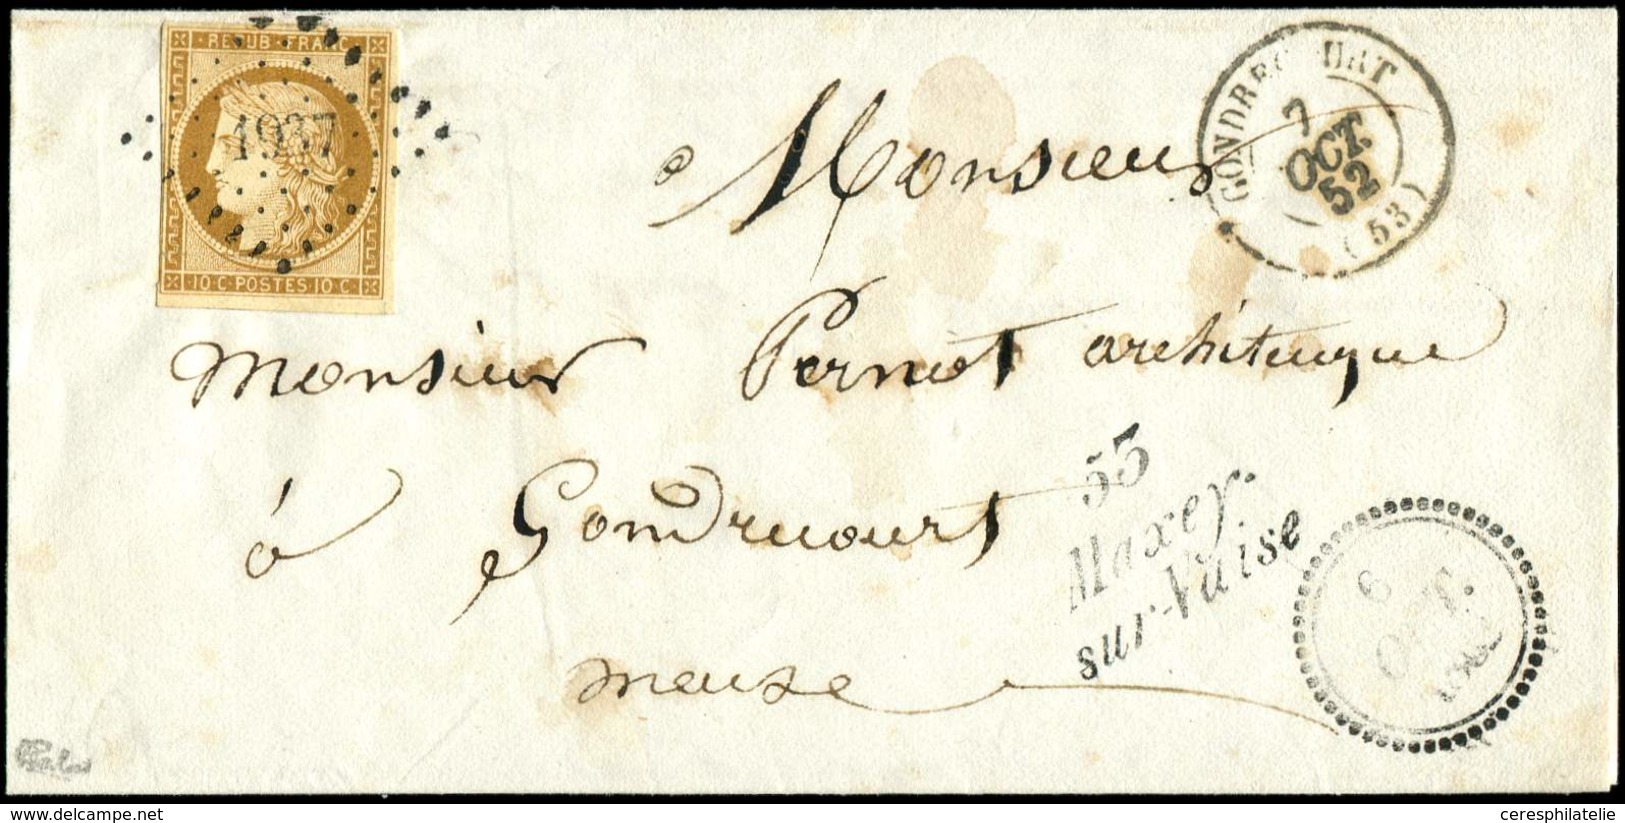 REPUB·FRANC
1937
10·C·POSTES·10·C·
GONDRECOURT
7
OCT.
52
(53)
Monsieur
Monsieur Pernot architecque
à Gondrecourt
meuse
53
Maxey-
sur-Vaise
6
OCT.
ceresphilatelie